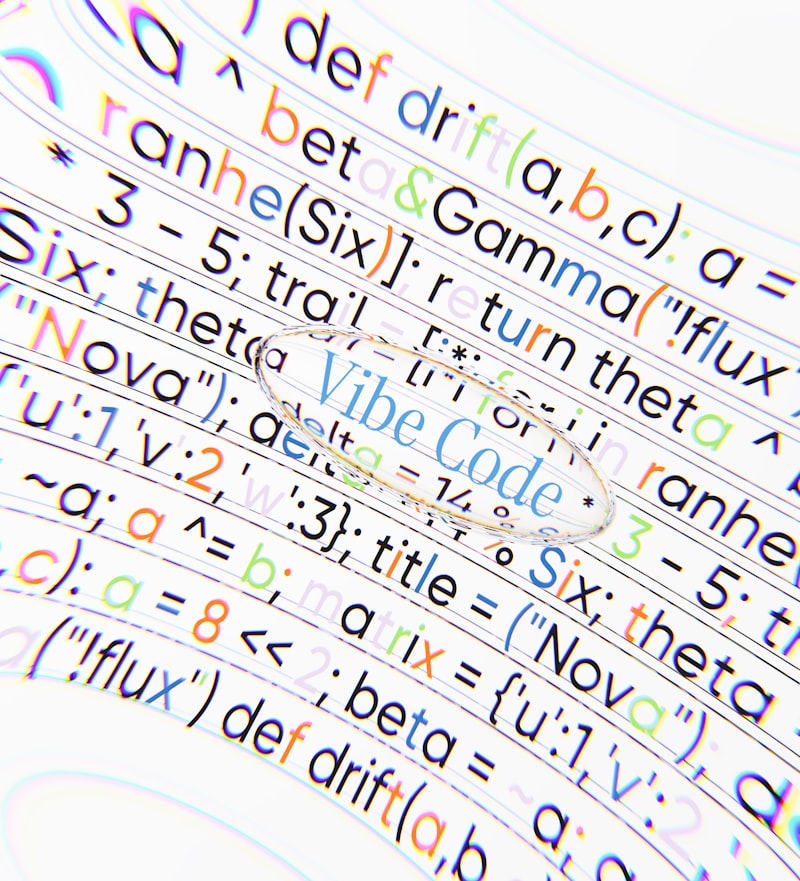 ) def drift(a,b,c): a =
a ^ beta&Gamma("!flux"
ranhe(Six)]; return theta ^ b
* 3 - 5; trail = [i*i for i in ranhe(
Six; theta = delta = 14 % Six; theta =
Vibe Code
* 3 - 5; tr
("Nova"); delta
{'u':1,'v':2,'w':3}; title = ("Nova"); de
~a; a ^= b; matrix = {'u':1,'v':2
,c): a = 8 << 2; beta = ~a; a
a("!flux") def drift(a,b